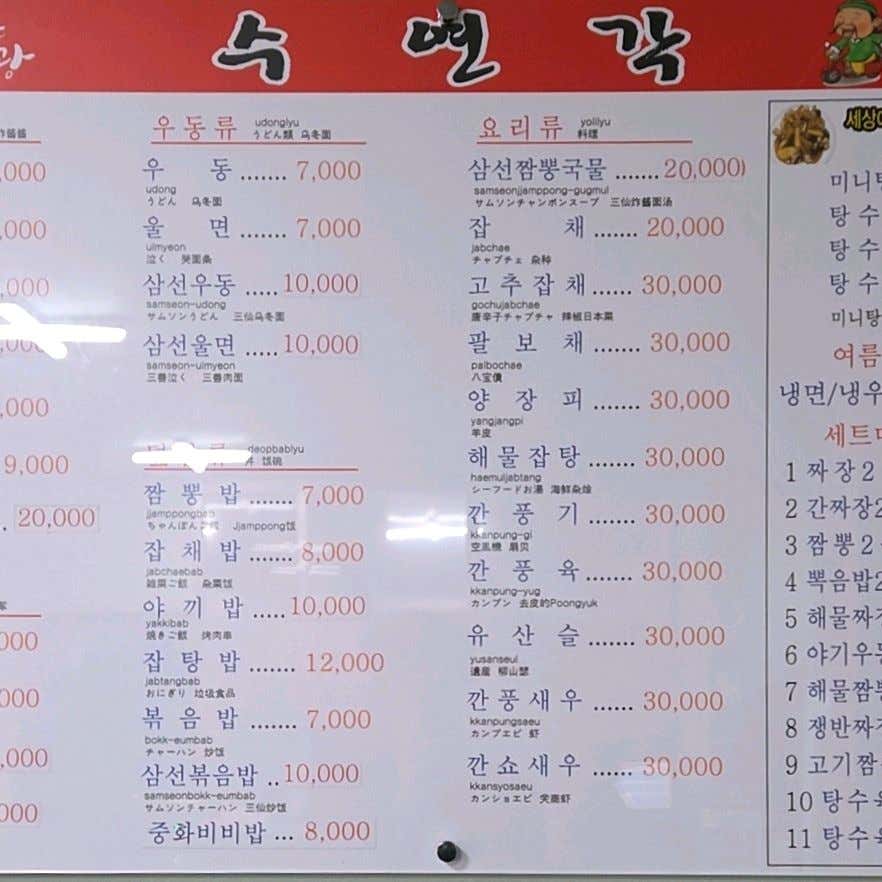 수연각
광
,000
,000
,000
,000
9,000
20,000
000
000
,000
000
우동류 udonglyu
うどん類 乌冬面
우동 ....... 7,000
udong
うどん 乌冬面
울면 ....... 7,000
ulmyeon
泣く 哭面条
삼선우동 ..... 10,000
samseon-udong
サムソンうどん 三仙乌冬面
삼선울면 ..... 10,000
samseon-ulmyeon
三番泣く 三番肉面
deopbablyu
丼 饭碗
짬뽕밥 ....... 7,000
jjamppongbab
Jjamppong饭
잡채밥 ....... 8,000
jabchaebab
雑菜ご飯 杂菜饭
야끼밥 ..... 10,000
yakkibab
焼きご飯 烤肉串
잡탕밥 ....... 12,000
jabtangbab
おにぎり 垃圾食品
볶음밥 ....... 7,000
bokk-eumbab
チャーハン 炒饭
삼선볶음밥 .. 10,000
samseonbokk-eumbab
サムソンチャーハン 三仙炒饭
중화비비밥 ... 8,000
요리류 yolilyu
料理
삼선짬뽕국물 ....... 20,000)
samseonjjamppong-gugmul
サムソンチャンポンスープ 三仙炸酱面汤
잡채 ...... 20,000
jabchae
チャプチェ 杂种
고추잡채 ...... 30,000
gochujabchae
唐辛子チャプチャ 辣椒日本菜
팔보채 ...... 30,000
palbochae
八宝債
양장피 ....... 30,000
yangjangpi
羊皮
해물잡탕 ....... 30,000
haemuljabtang
シーフードお湯 海鲜杂烩
깐풍기 ....... 30,000
kkanpung-gi
空風機 扇贝
깐풍육 ....... 30,000
kkanpung-yug
カンプン 去皮的Poongyuk
유산슬 ....... 30,000
yusanseul
遺産 柳山瑟
깐풍새우 ...... 30,000
kkanpungsaeu
カンプエビ 虾
깐쇼새우 ...... 30,000
kkansyosaeu
カンショエビ 虾
세상에
미니탕
탕수
탕수
탕수
미니탕
여름
냉면/냉우
세트
1 짜장2
2 간짜장2
3 짬뽕2
4 볶음밥2
5 해물짜
6 야기우동
7 해물짬뽕
8 쟁반짜
9 고기짬
10 탕수육
11 탕수육